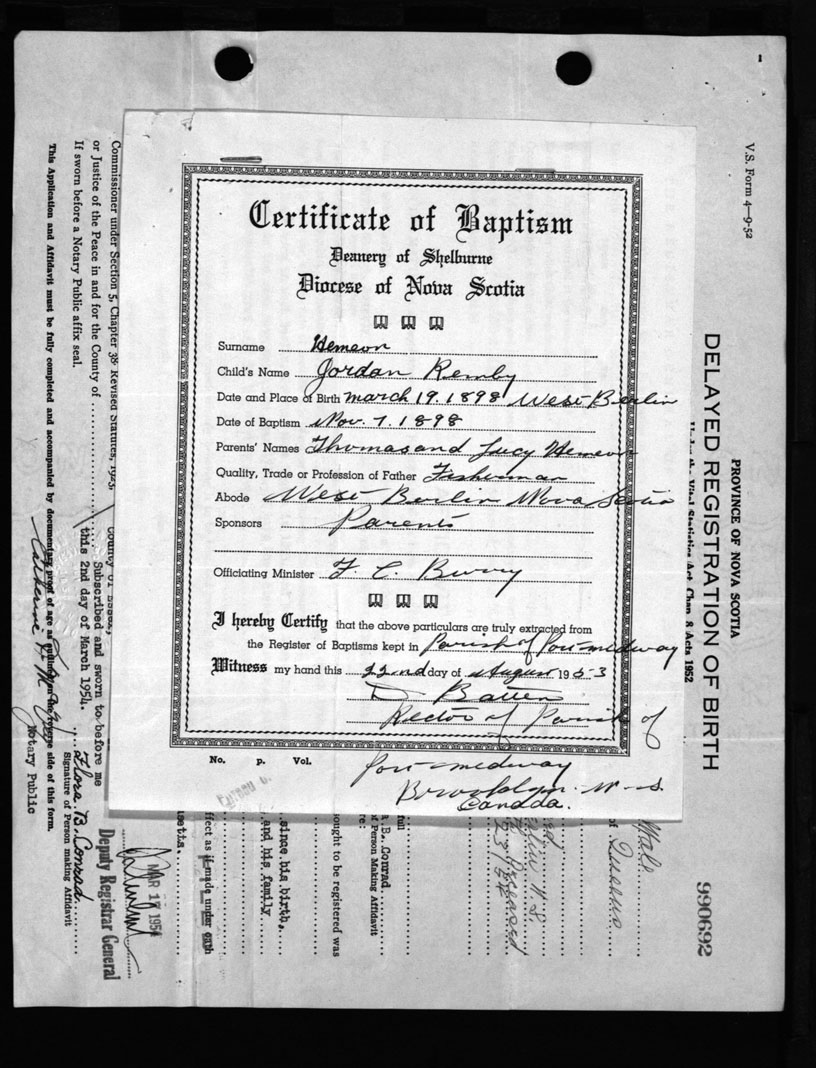 1
Certificate of Baptism
Deanery of Shelburne
Diocese of Nova Scotia
Surname Hemeon
Child's Name Jordan Remby
Date and Place of Birth March 19. 1898 West Berlin
Date of Baptism Nov. 7. 1898
Parents' Names Thomas and Lucy Hemeon
Quality, Trade or Profession of Father Fisherman
Abode West Berlin Nova Scotia
Sponsors Parents
Officiating Minister F. C. Berry
I hereby Certify that the above particulars are truly extracted from
the Register of Baptisms kept in Parish of Port medway
Witness my hand this 22nd day of August 1953
D Batten
Rector of Parish of
Port medway
Brooklyn. N-S
Canada.
No. p. Vol.
V.S. Form 4-9-52
PROVINCE OF NOVA SCOTIA
DELAYED REGISTRATION OF BIRTH
Under the Vital Statistics Act, Chap. 8 Acts 1952
990692
Male
of Queens
N.S.
Deceased
full
A.B. Conrad
of Person Making Affidavit
re:
ought to be registered was
since his birth.
and his family
ffect as if made under oath
setts.
Deputy Registrar General
MAR 17 1954
Commissioner under Section 5, Chapter 38 Revised Statutes, 1923,
or Justice of the Peace in and for the County of
If sworn before a Notary Public affix seal.
County of Essex,
Subscribed and sworn to before me
this 2nd day of March 1954.
Flora B. Conrad
Signature of Person making Affidavit
Catherine
Notary Public
This Application and Affidavit must be fully completed and accompanied by documentary proof of age as outlined on the reverse side of this form.